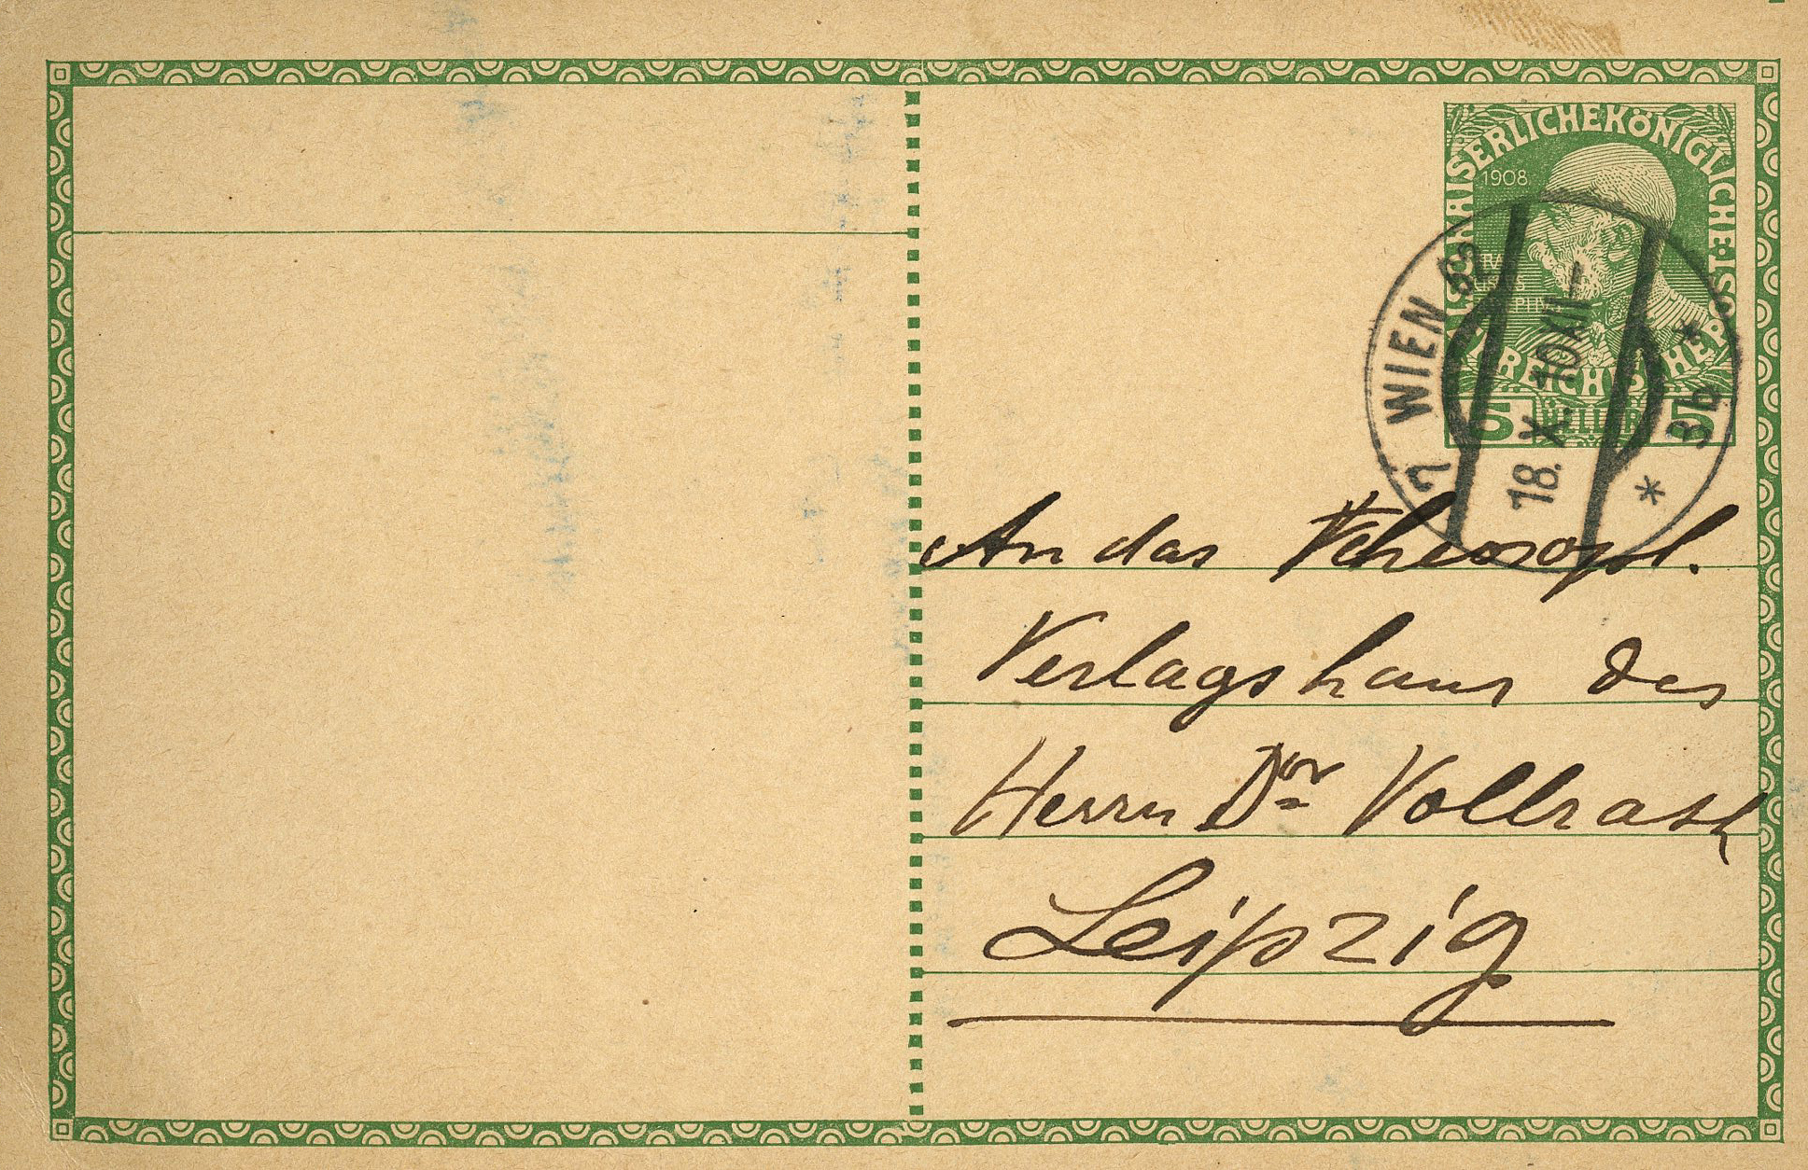 KAISERLICHE KÖNIGLICHE ÖSTERREICHISCHE POST
1908
5 HELLER 5
WIEN
18.X.10 XII
3b
An das Theosoph.
Verlagshaus des
Herrn Dor Vollrath
Leipzig